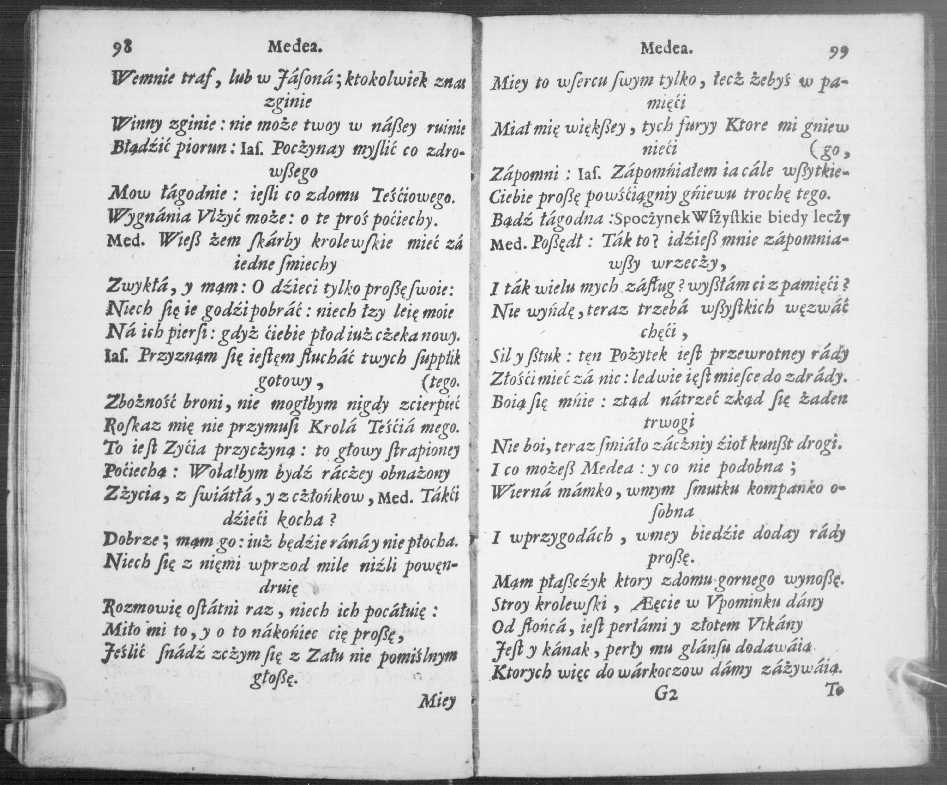 98 Medea.
Wemnie traf, lub w Jáſoná; ktokolwiek znas
zginie
Winny zginie: nie może twoy w náßey ruinie
Błądźić piorun: Iaſ. Poczżynay myślić co zdro-
wßego
Mow łágodnie: ieſli co zdomu Teśćiowego.
Wygnánia Vlżyć może: o te proś poćiechy.
Med. Wieß żem ſkárby krolewſkie mieć zá
iedne ſmiechy
Zwykłá, y mąm: O dźieci tylko proßę ſwoie:
Niech ſię ie godźi pobráć: niech łzy leię moie
Ná ich pierſi: gdyż ćiebie płod iuż cżeka nowy.
Iaſ. Przyznąm ſię ieſtęm ſłucháć twych ſupplik
gotowy, (tego.
Zbożność broni, nie mogłbym nigdy zcierpieć
Roſkaz mię nie przymuſi Krolá Teśćiá mego.
To ieſt Zyćia przycżyną: to głowy ſtrapioney
Poćiechą: Wolałbym bydź rácżey obnażony
Zżycia, z ſwiátłá, y z cżłońkow, Med. Tákći
dźieći kocha?
Dobrze; mąm go: iuż będźie ráná y nie płocha.
Niech ſię z nięmi wprzod mile niźli powęn-
druię
Rozmowię oſtátni raz, niech ich pocáłuię:
Miło mi to, y o to nákońiec cię proßę,
Jeślić ſnádź zcżym ſię z Zału nie pomiślnym
głoßę.
Miey
Medea. 99
Miey to wſercu ſwym tylko, łecż żebyś w pa-
mięći
Miał mię więkßey, tych furyy Ktore mi gniew
nieći (go,
Zápomni: Iaſ. Zápomńiałem ia cále wßytkie-
Ciebie proßę powśćiągniy gńiewu trochę tego.
Bądź łágodna: Spocżynek Wſżyſtkie biedy lecży
Med. Poßędł: Ták to? idźieß mnie zápomnia-
wßy wrzecży,
I ták wielu mych záſług? wyßłám ci z pamięći?
Nie wyńdę, teraz trzebá wßyſtkich węzwáć
chęći,
Sil y ſztuk: tęn Pożytek ieſt przewrotney rády
Złośći mieć zá nic: ledwie ięſt mieſce do zdrády.
Boią ſię mńie: ztąd nátrzeć zkąd ſię żaden
trwogi
Nie boi, teraz ſmiáło zácżniy źioł kunßt drogi.
I co możeß Medea: y co nie podobna;
Wierná mámko, wmym ſmutku kompanko o-
ſobna
I wprzygodách, wmey biedźie doday rády
proßę.
Mąm płaßcżyk ktory zdomu gornego wynoßę.
Stroy krolewſki, Æęcie w Vpominku dány
Od ſłońcá, ieſt perłámi y złotem Vtkány
Jeſt y kának, perły mu glánſu dodawáią
Ktorych więc do wárkoczow dámy záżywáią.
G2 To